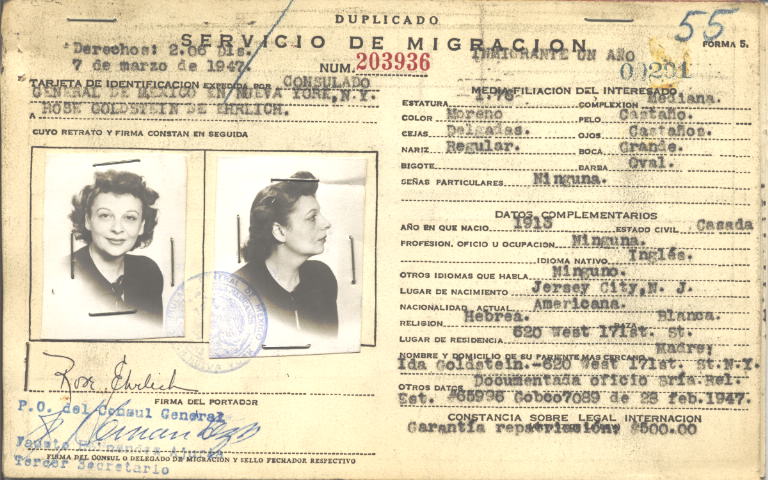 DUPLICADO
55
SERVICIO DE MIGRACION
FORMA 5.
Derechos: 2.06 Dls.
7 de marzo de 1947.
NUM. 203936
INMIGRANTE UN AÑO
00291
TARJETA DE IDENTIFICACION EXPEDIDA POR CONSULADO
GENERAL DE MEXICO EN NUEVA YORK, N.Y.
A ROSE GOLDSTEIN DE EHRLICH.
CUYO RETRATO Y FIRMA CONSTAN EN SEGUIDA
Rose Ehrlich
FIRMA DEL PORTADOR
P.O. del Consul General
Tercer Secretario
FIRMA DEL CONSUL O DELEGADO DE MIGRACION Y SELLO FECHADOR RESPECTIVO
MEDIA FILIACION DEL INTERESADO
ESTATURA 1.76 COMPLEXION Mediana.
COLOR Moreno PELO Castaño.
CEJAS Delgadas. OJOS Castaños.
NARIZ Regular. BOCA Grande.
BIGOTE BARBA Oval.
SEÑAS PARTICULARES Ninguna.
DATOS COMPLEMENTARIOS
AÑO EN QUE NACIO 1913 ESTADO CIVIL Casada
PROFESION, OFICIO U OCUPACION Ninguna.
IDIOMA NATIVO Inglés.
OTROS IDIOMAS QUE HABLA Ninguno.
LUGAR DE NACIMIENTO Jersey City, N. J.
NACIONALIDAD ACTUAL Americana.
RELIGION Hebrea. RAZA Blanca.
LUGAR DE RESIDENCIA 620 West 171st. St.
NOMBRE Y DOMICILIO DE SU PARIENTE MAS CERCANO Madre;
Ida Goldstein.-620 West 171st. St.N.Y.
OTROS DATOS Documentada oficio Sría.Rel.
Est. #65996 Gobco7089 de 28 feb.1947.
CONSTANCIA SOBRE LEGAL INTERNACION
Garantía repatriación: $500.00